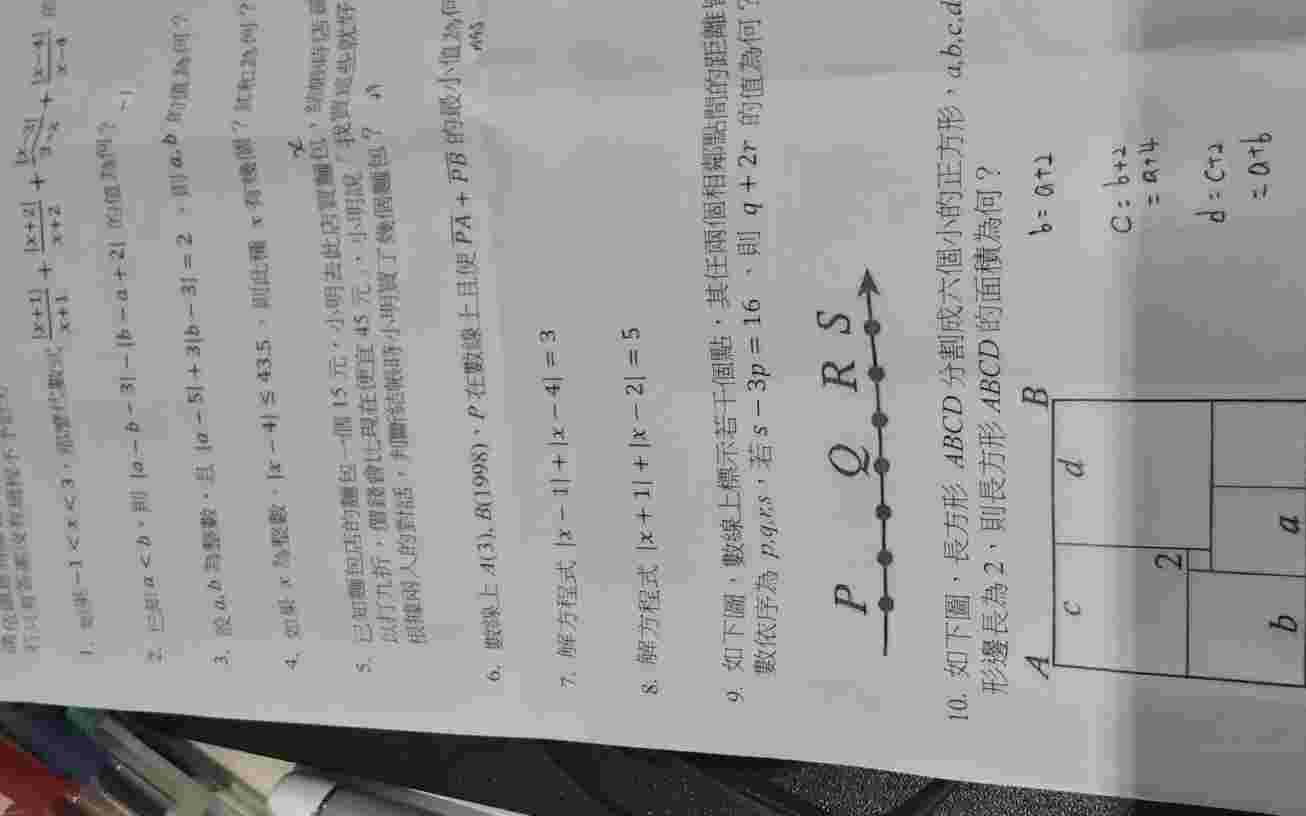 1. 如果 −1 < x < 3，那麼代數式 |x+1|/x+1 + |x+2|/x+2 + |x−3|/3−x + |x−4|/x−4
2. 已知 a < b，則 |a − b − 3| − |b − a + 2| 的值為何？ −1
3. 設 a, b 為整數，且 |a − 5| + 3|b − 3| = 2，則 a, b 的值為何？
4. 如果 x 為整數，|x − 4| ≤ 43.5，則此種 x 有幾個？總和為何？
x
5. 已知麵包店的麵包一個 15 元，小明去此店買麵包，
以打九折，價錢會比現在便宜 45 元」，小明說：「我買這些就好
根據兩人的對話，判斷結帳時小明買了幾個麵包？
6. 數線上 A(3), B(1998)，P 在數線上且使 PA + PB 的最小值為何
7. 解方程式 |x − 1| + |x − 4| = 3
8. 解方程式 |x + 1| + |x − 2| = 5
9. 如下圖，數線上標示若干個點，其任兩個相鄰點間的距離
數依序為 p,q,r,s，若 s − 3p = 16，則 q + 2r 的值為何？
P Q R S
10. 如下圖，長方形 ABCD 分割成六個小的正方形，a,b,c,d
形邊長為 2，則長方形 ABCD 的面積為何？
A B
c d
2
b a
b = a+2
c = b+2
= a+4
d = c+2
= a+b